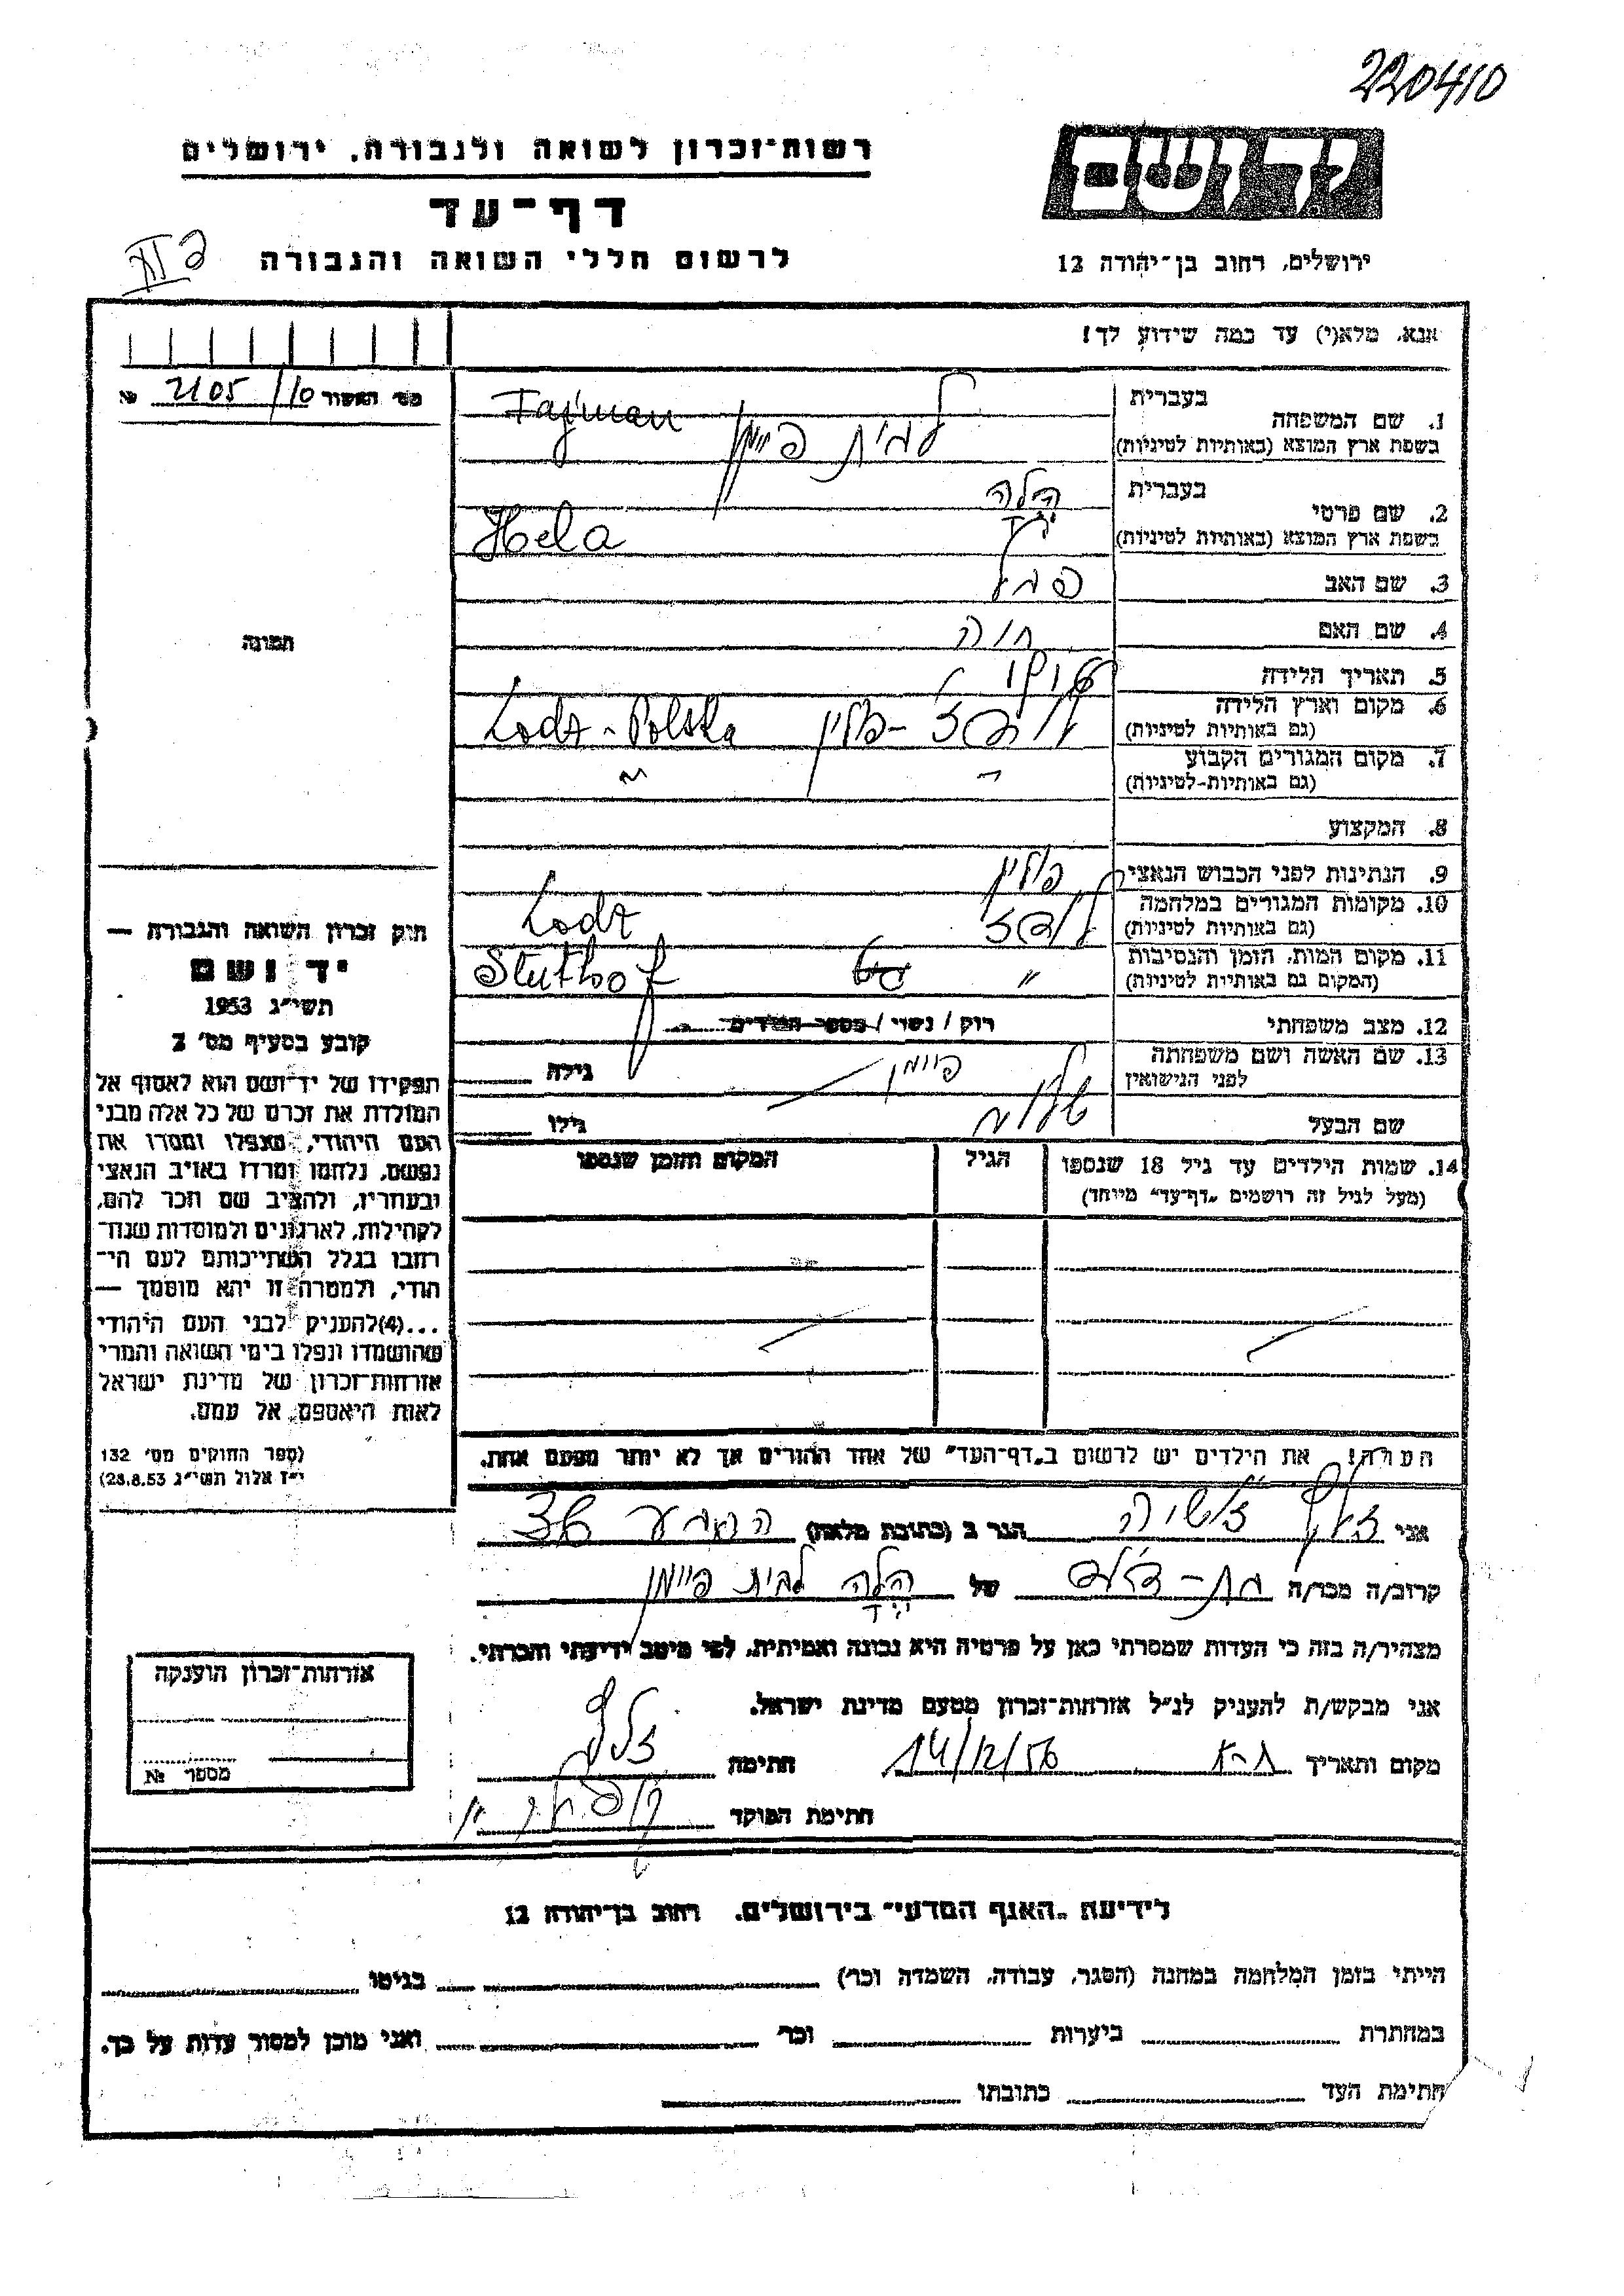 220410
רשות־זכרון לשואה ולגבורה, ירושלים
יד ושם
דף־עד
לרשום חללי השואה והגבורה
ירושלים, רחוב בן־יהודה 12
אנא, מלא(י) עד כמה שידוע לך!
מס׳ האשור 2105/10 №
1. שם המשפחה בעברית
בשפת ארץ המוצא (באותיות לטיניות)
לבית פיימן Fajman
2. שם פרטי בעברית הלה
בשפת ארץ המוצא (באותיות לטיניות) Hela
3. שם האב
4. שם האם חוה
5. תאריך הלידה
6. מקום וארץ הלידה
(גם באותיות לטיניות) לודז - פולין Lodz - Polska
7. מקום המגורים הקבוע
(גם באותיות-לטיניות) " "
8. המקצוע
9. הנתינות לפני הכבוש הנאצי פולין
10. מקומות המגורים במלחמה
(גם באותיות לטיניות) לודז Lodz
11. מקום המות, הזמן והנסיבות
(המקום גם באותיות לטיניות) " Stutthof
12. מצב משפחתי רוק / נשוי / מספר הילדים
13. שם האשה ושם משפחתה
לפני הנישואין פיימן גילה
שם הבעל גילו
14. שמות הילדים עד גיל 18 שנספו הגיל המקום והזמן שנספו
(מעל לגיל זה רושמים „דף־עד" מיוחד)
הערה! את הילדים יש לרשום ב„דף־העד" של אחד ההורים אך לא יותר מפעם אחת.
תמונה
חוק זכרון השואה והגבורה —
יד ושם
תשי״ג 1953
קובע בסעיף מס׳ 2
תפקידו של יד־ושם הוא לאסוף אל
המולדת את זכרם של כל אלה מבני
העם היהודי, שנפלו ומסרו את
נפשם, נלחמו ומרדו באויב הנאצי
ובעוזריו, ולהציב שם וזכר להם,
לקהילות, לארגונים ולמוסדות שנח־
רבו בגלל השתייכותם לעם הי־
הודי, ולמטרה זו יהא מוסמך —
...(4)להעניק לבני העם היהודי
שהושמדו ונפלו בימי השואה והמרי
אזרחות־זכרון של מדינת ישראל
לאות היאספם אל עמם.
(ספר החוקים מס׳ 132
י״ז אלול תשי״ג 28.8.53)
אני הגר ב (כתובת מלאה)
קרוב/ה מכר/ה בת-דוד של הלה לבית פיימן
מצהיר/ה בזה כי העדות שמסרתי כאן על פרטיה היא נכונה ואמיתית, לפי מיטב ידיעתי והכרתי.
אני מבקש/ת להעניק לנ״ל אזרחות־זכרון מטעם מדינת ישראל.
מקום ותאריך ת-א 14/12/56 חתימה
חתימת הפוקד
אזרחות־זכרון הוענקה
מספר №
לידיעת „האגף המדעי" בירושלים, רחוב בן־יהודה 12
הייתי בזמן המלחמה במחנה (הסגר, עבודה, השמדה וכו׳) בגיטו
במחתרת ביערות וכו׳ ואני מוכן למסור עדות על כך.
חתימת העד כתובתו